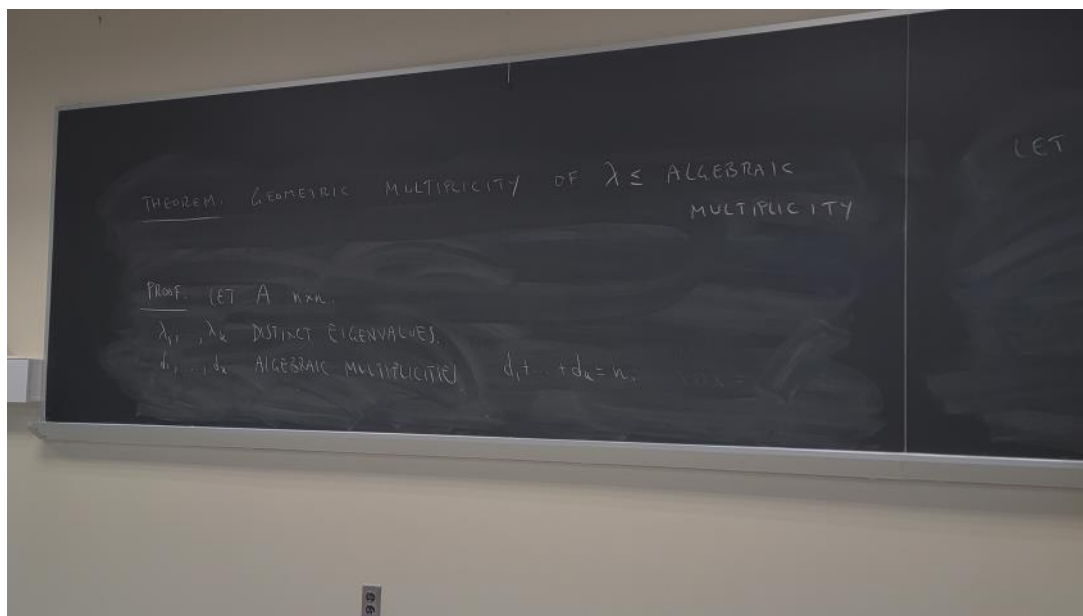 THEOREM. GEOMETRIC MULTIPLICITY OF λ ≤ ALGEBRAIC
MULTIPLICITY
PROOF. LET A n×n.
λ₁, .., λₖ DISTINCT EIGENVALUES.
d₁, ..., dₖ ALGEBRAIC MULTIPLICITIES d₁+ ... + dₖ = n.
LET